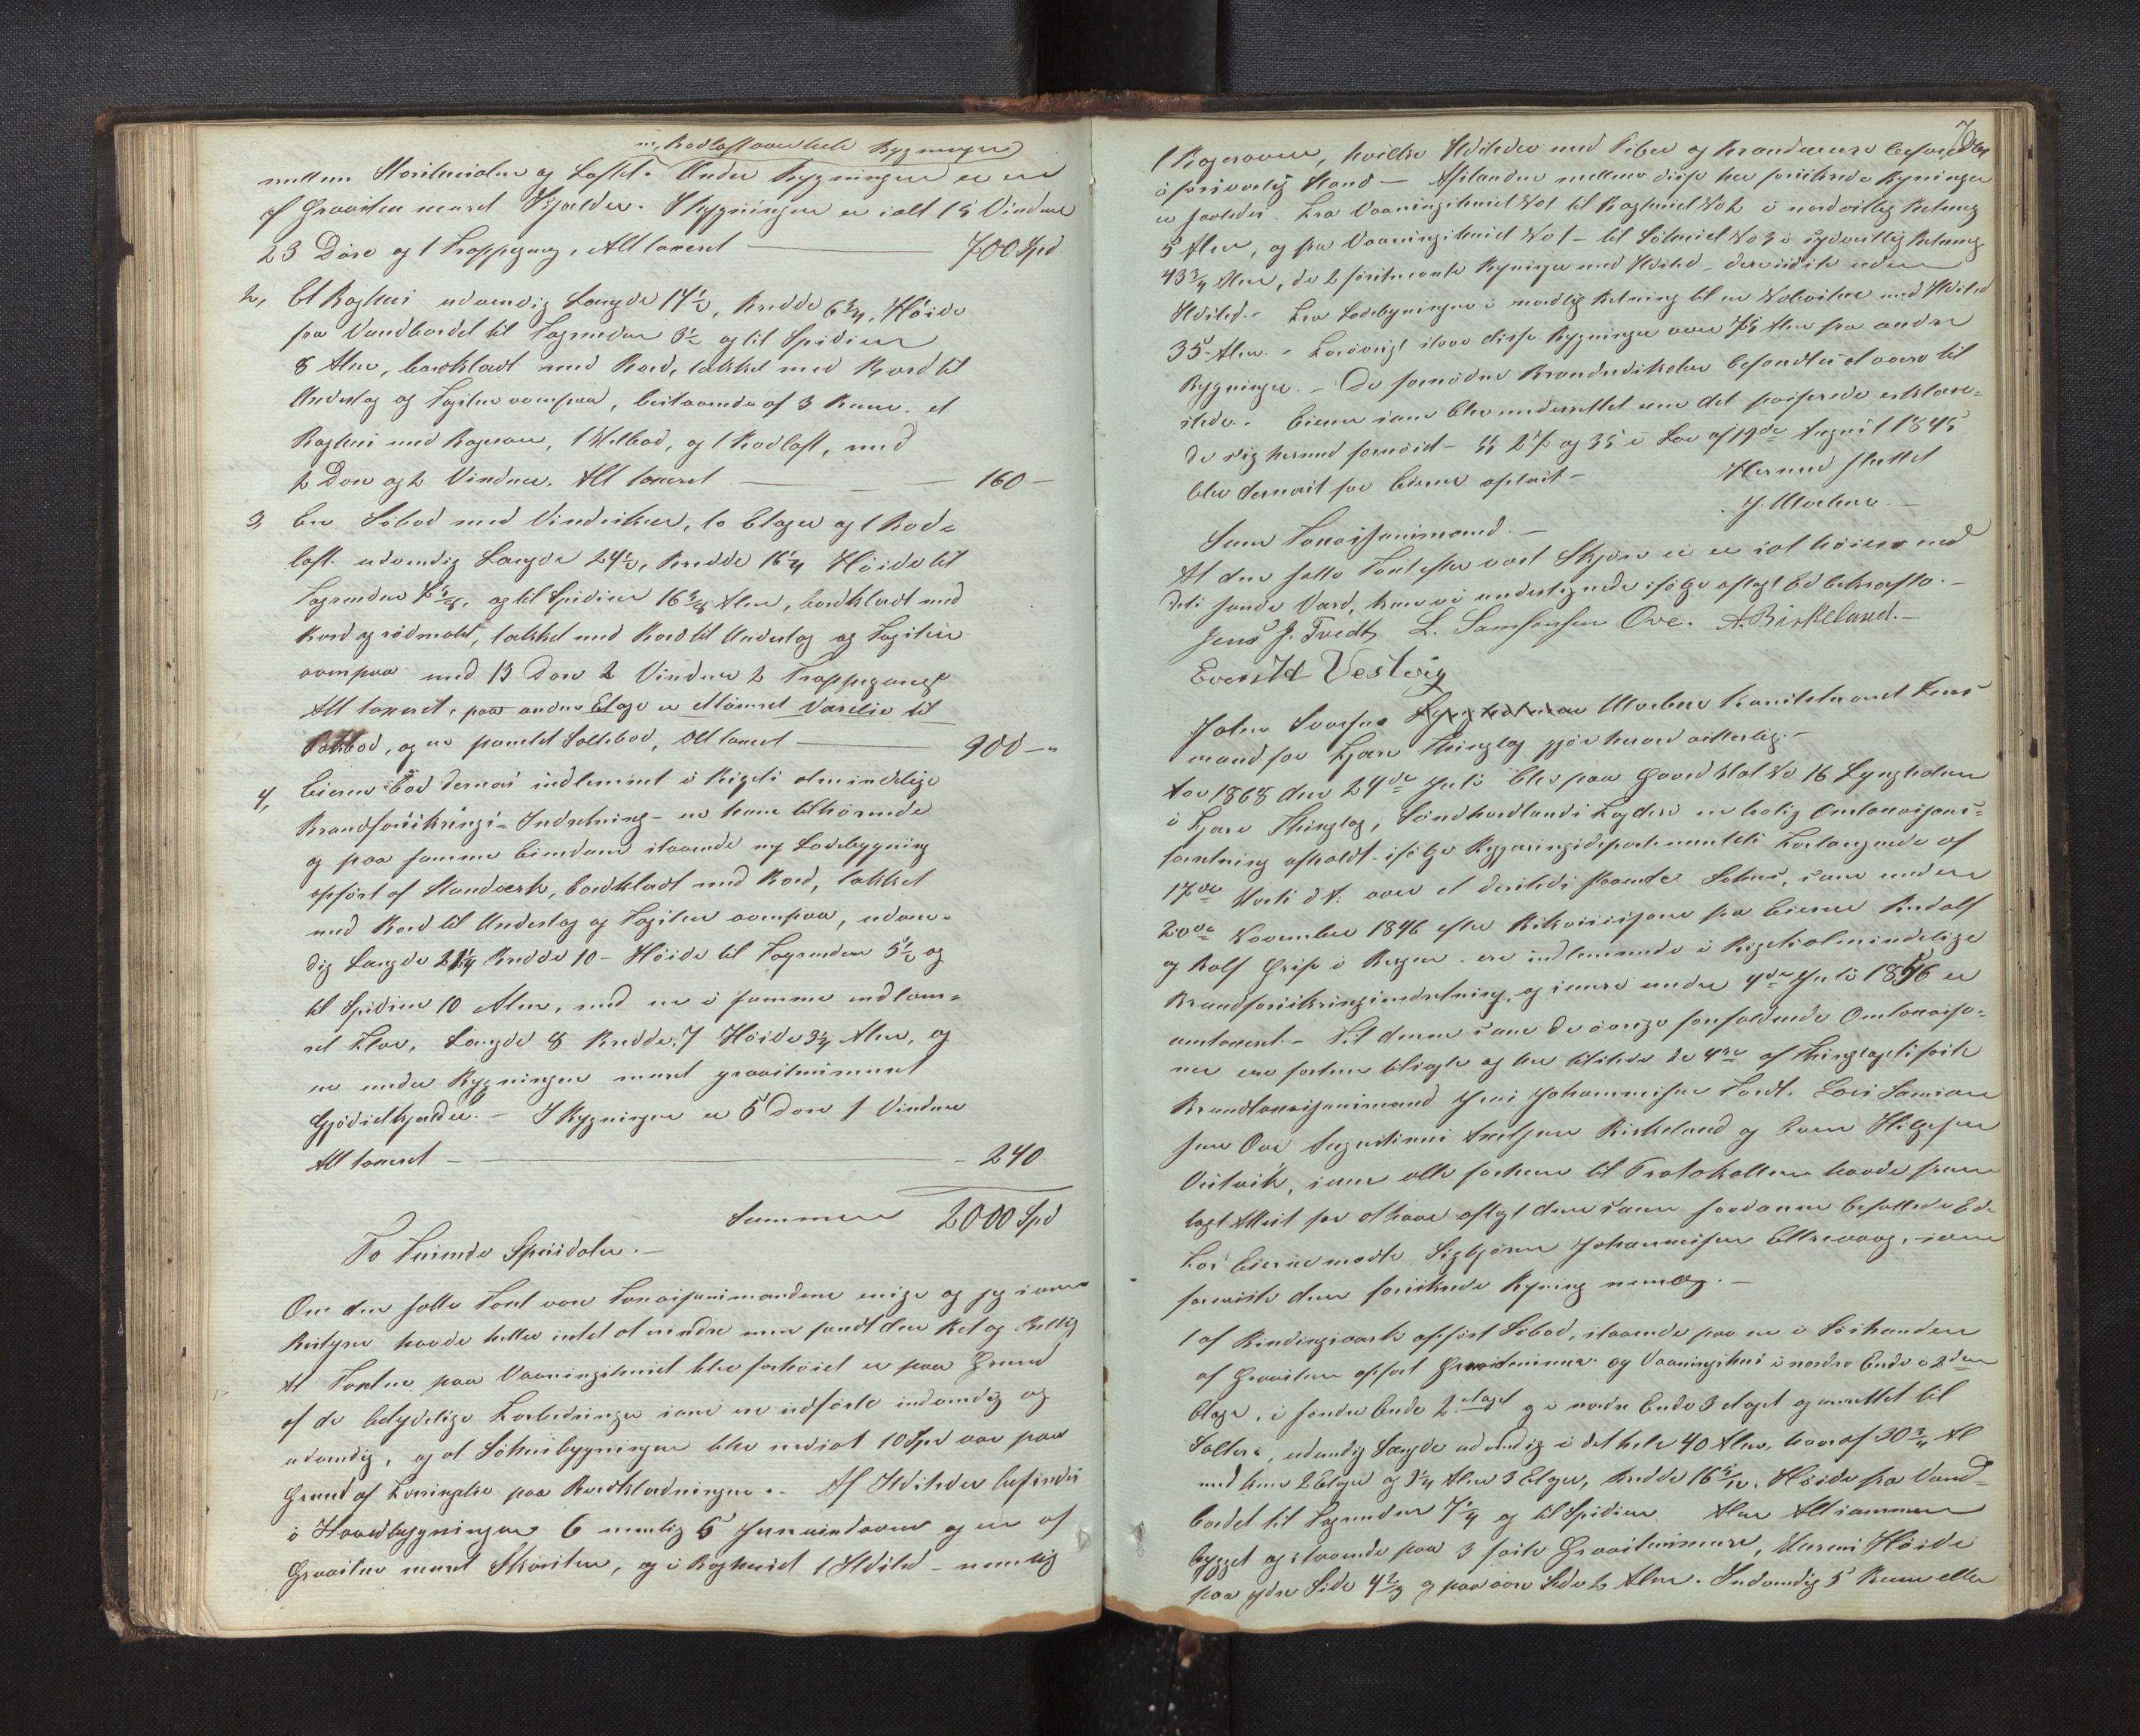 m, Rodloft over hele Bygningen
mellem Storstuerne og Loftet. Under Bygningen er en
af Graasten muret Kjælder. I Bygningen er ialt 15 Vinduer
23 Døre og 1 Trappegang, Alt taxeret — 700 Spd
2, Et Baghus udvendig Længde 14½, Bredde 6¾, Høide
fra Vandbordet til Tagrenden 3½ og til Spidsen
8 Alen, bordklædt med Bord, takket med Bord til
Underlag og Tagsten ovenpaa, bestaaende af 3 Rum. et
Baghus med Bagerovn, 1 Melbod, og 1 Rodloft, med
2 Døre og 2 Vinduer. Alt taxeret — 160 —
3, En Søbod med Vindskur, to Etager og 1 Rod-
loft. udvendig Længde 24½, Bredde 16¼ Høide til
Tagrenden, og til Spidsen 16⅜ Alen, bordklædt med
Bord og rødmalet, takket med Bord til Underlag og Tagsten
ovenpaa med 13 Døre 2 Vinduer 2 Trappegange
Alt taxeret, paa anden Etage er et Værelse til
og en panelet Saltebod, Alt taxeret — 900 —
4, Eieren bød dernæst indlemmet i Rigets almindelige
Brandforsikrings-Indretning — en ham tilhørende
og paa samme Eiendom staaende ny Ladebygning
opført af Standværk, bordklædt med Bord, takket
med Bord til Underlag og Tagsten ovenpaa, udven-
dig Længde 21¼ Bredde 10 — Høide til Tagrenden 5½ og
til Spidsen 10 Alen, med en i samme indlem-
met Flor, Længde 8 Bredde 7 Høide 3¼ Alen, og
en under Bygningen muret graastensmuret
Gjødselkjælder. — I Bygningen er 5 Døre 1 Vindue
Alt taxeret — 240
Summen 2000 Spd
To Tusinde Speciedaler. —
Om den satte Taxt vare Taxationsmændene enige og jeg som
Bestyrer havde heller intet at erindre men fandt den Ret og Billig
At Taxten paa Vaaningshuset blev forhøiet er paa Grund
af de betydelige Forbedringer som ere udførte indvendig og
udvendig, og at Søhusbygningen blev nedsat 10 Spd var paa
Grund af Forringelse paa Bordklædningen. — Af Ildsteder befindes
i Hovedbygningen 6 nemlig 5 Jernvindovne og en af
Graasten muret Skorsten, og i Baghuset 1 Ildsted — nemlig
70
1 Bagerovn, hvilke Ildsteder med Piber og Brandmure befandtes
i forsvarlig Stand — Afstanden mellem disse her forsikrede Bygninger
er saaledes. Fra Vaaningshuset No 1 til Baghuset No 2 i nordvestlig Retning
5 Alen, og fra Vaaningshuset No 1 — til Søhuset No 3 i sydvestlig Retning
43¾ Alen, de 2 førstnevnte Bygninger med Ildsted — den sidste uden
Ildsted. — Fra Ladebygningen i nordlig Retning til en med Ildsted
35 Alen. — Forøvrigt staar disse Bygninger over 75 Alen fra andre
Bygninger. — De fornødne Brandredskaber befandtes at være til
stede. — Eieren som blev underrettet om det passerede erklære-
de sig hermed fornøiet — §§ 27 og 35 i Lov af 19de August 1845
blev dernæst for Eieren oplæst — Hermed sluttet
J. Mowinckel —
Som Taxationsmænd. —
At den satte Taxt efter vort Skjøn ei er sat høiere end
dets sande Værd, kan vi undertegnede ifølge aflagt Ed bekræfte. —
Jens J. Tvedt, L. Samsonsen Ove. A. Birkeland. —
Even H. Vestvig
John Svarsen Lyngholmen Mowinckel Konstitueret Lens
mand for Fjære Thinglag gjør herved vitterligt. —
Aar 1868 den 24de Juli blev paa Gaard Mat No 16 Lyngholmen
i Fjære Thinglag, Søndhordlands Fogderi en lovlig Omtaxations-
forretning afholdt ifølge Regjeringsdepartementets Forlangende af
17de Marts d. A. over et dersteds staaende Søhus, som under
20de November 1846 efter Rekvisition fra Eierne Rudolf
og Rolf Grip i Bergen — ere indlemmede i Rigets almindelige
Brandforsikringsindretning, og senere under 4de Juli 1856 er
omtaxeret. — Til denne som de øvrige forefaldende Omtaxatio-
ner ere forhen tilsagte og her tilstede de 4re af Thinglagets faste
Brandtaxationsmænd Jens Johannessen Tvedt, Lars Samson
sen Ove Augustinus Axelsen Birkeland og Even Helgesen
Vestvik, som alle forhen til Protokollen havde frem
lagt Attest for at have aflagt den som saadanne befallede Ed.
For Eierne mødte Sigbjørn Johannessen Eltrevaag, som
foreviste den forsikrede Bygning nemlig. —
1 af Bindingsværk opført Søbod, staaende paa en i Søstranden
af Graasten opført Graastensmur og Vaaningshus i nordre Ende i 2den
Etage, i søndre Ende 2 etaget og i nordre Ende 3 etaget og indrettet til
Salteri, udvendig Længde udvendig i det hele 40 Alen, hvoraf 30¾ Al
med kun 2 Etager og 9¼ Alen 3 Etager, Bredde 16 5/12. Høide fra Vand-
bordet til Tagrenden 7¼ og til Spidsen Alen Alt sammen
bygget og staaende paa 3 faste Graastensmure, Murens Høide
paa ydre Side 4⅔ og paa øvre Side 2 Alen. Indvendig 5 Rum eller